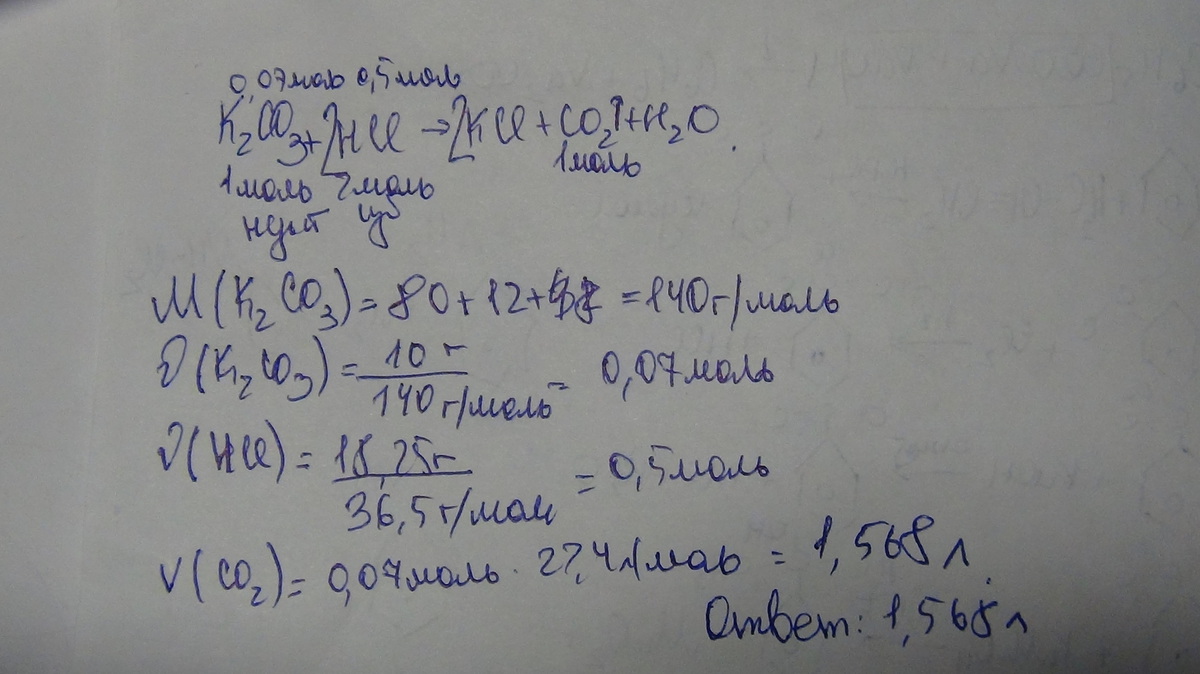 0,07моль 0,5моль
K₂CO₃+2HCl→2KCl+CO₂↑+H₂O
1моль 2моль 1моль
нед-т изб
M(K₂CO₃)=80+12+48=140г/моль
ν(K₂CO₃)=10г/140г/моль=0,07моль
ν(HCl)=18,25г/36,5г/моль=0,5моль
V(CO₂)=0,07моль·22,4л/моль=1,568л.
Ответ: 1,568л